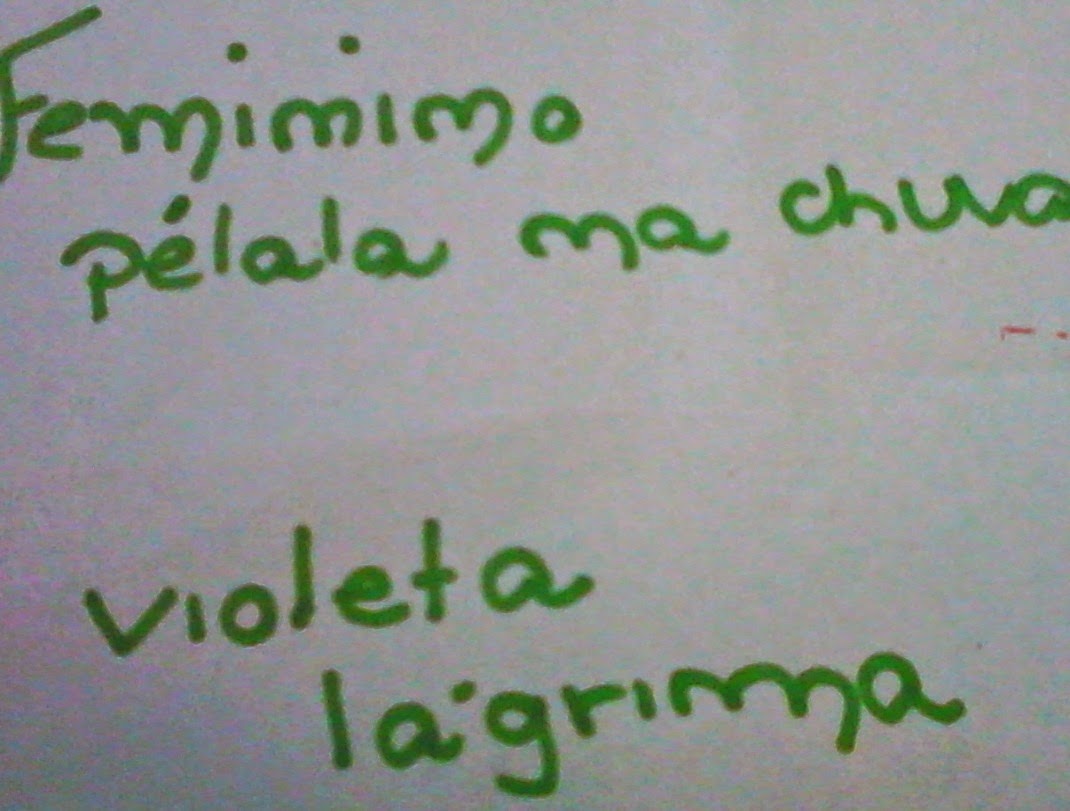 Feminino
pélala na chuva
violeta
lágrima